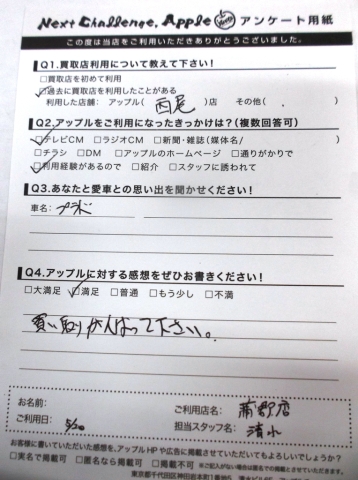 Next Challenge, Apple アンケート用紙
この度は当店をご利用いただきありがとうございました。
Q1.買取店利用について教えて下さい!
□買取店を初めて利用
☑過去に買取店を利用したことがある
利用した店舗: アップル( 西尾 )店 その他( )
Q2.アップルをご利用になったきっかけは?(複数回答可)
☑テレビCM □ラジオCM □新聞・雑誌(媒体名/ )
□チラシ □DM □アップルのホームページ □通りがかりで
☑利用経験があるので □紹介 □スタッフに誘われて
Q3.あなたと愛車との思い出を聞かせください!
車名: プラド
Q4.アップルに対する感想をぜひお書きください!
□大満足 ☑満足 □普通 □もう少し □不満
買い取りがんばって下さい。
お名前:
ご利用店名: 蒲郡店
ご利用日: 5/20
担当スタッフ名: 清水
お客様に書いていただいた感想を、アップルHPや広告に掲載させていただいてもよろしいでしょうか?
□実名で掲載可 □匿名なら掲載可 □掲載不可 ※ご記入がない場合は匿名での掲載とさせていただきます。
東京都千代田区神田岩本町